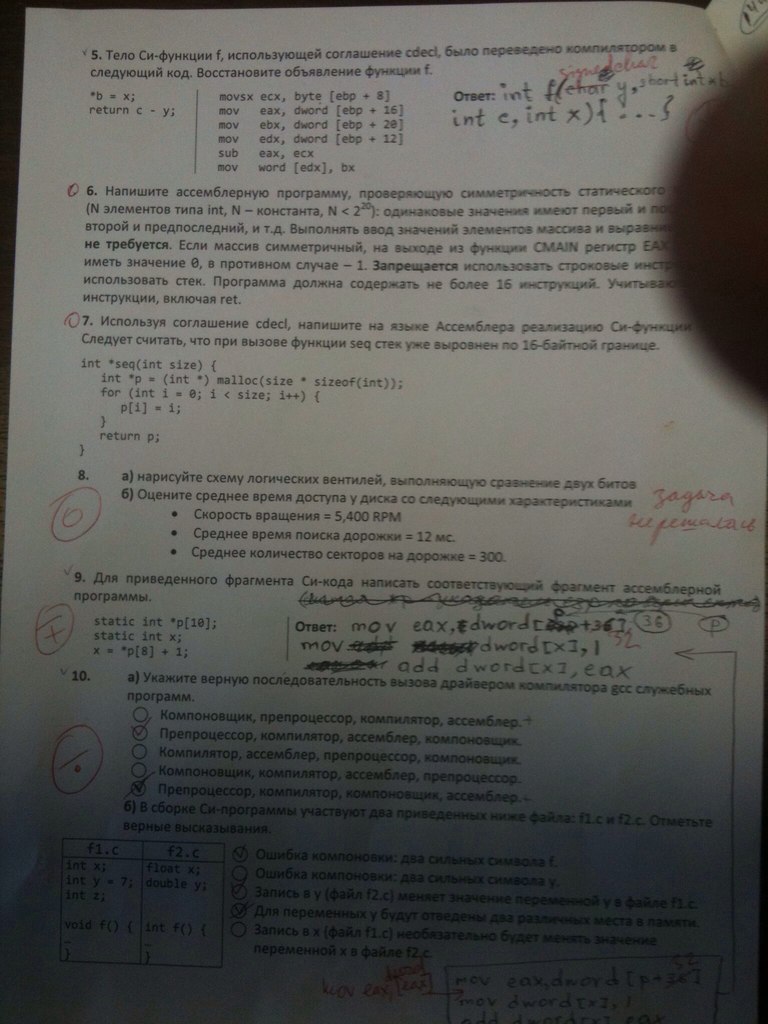 5. Тело Си-функции f, использующей соглашение cdecl, было переведено компилятором в
следующий код. Восстановите объявление функции f.
*b = x;
return c - y;
movsx ecx, byte [ebp + 8]
mov eax, dword [ebp + 16]
mov ebx, dword [ebp + 20]
mov edx, dword [ebp + 12]
sub eax, ecx
mov word [edx], bx
signed char
Ответ: int f(char y, short int
int c, int x){ ... }
6. Напишите ассемблерную программу, проверяющую симметричность статического
(N элементов типа int, N – константа, N < 2²⁰): одинаковые значения имеют первый и
второй и предпоследний, и т.д. Выполнять ввод значений элементов массива и
не требуется. Если массив симметричный, на выходе из функции CMAIN регистр
иметь значение 0, в противном случае – 1. Запрещается использовать строковые
использовать стек. Программа должна содержать не более 16 инструкций.
инструкции, включая ret.
7. Используя соглашение cdecl, напишите на языке Ассемблера реализацию Си-функции
Следует считать, что при вызове функции seq стек уже выровнен по 16-байтной границе.
int *seq(int size) {
int *p = (int *) malloc(size * sizeof(int));
for (int i = 0; i < size; i++) {
p[i] = i;
}
return p;
}
8. а) нарисуйте схему логических вентилей, выполняющую сравнение двух битов
б) Оцените среднее время доступа у диска со следующими характеристиками
• Скорость вращения = 5,400 RPM
• Среднее время поиска дорожки = 12 мс.
• Среднее количество секторов на дорожке = 300.
0
задача
не решалась
9. Для приведенного фрагмента Си-кода написать соответствующий фрагмент ассемблерной
программы.
static int *p[10];
static int x;
x = *p[8] + 1;
+
Ответ: mov eax, dword[ +36] 36 p
32
mov dword[x], 1
add dword[x], eax
10. а) Укажите верную последовательность вызова драйвером компилятора gcc служебных
программ.
Компоновщик, препроцессор, компилятор, ассемблер.
Препроцессор, компилятор, ассемблер, компоновщик.
Компилятор, ассемблер, препроцессор, компоновщик.
Компоновщик, компилятор, ассемблер, препроцессор.
Препроцессор, компилятор, компоновщик, ассемблер.
б) В сборке Си-программы участвуют два приведенных ниже файла: f1.c и f2.c. Отметьте
верные высказывания.
f1.c f2.c
int x; float x;
int y = 7; double y;
int z;
void f() { int f() {
… …
} }
Ошибка компоновки: два сильных символа f.
Ошибка компоновки: два сильных символа y.
Запись в y (файл f2.c) меняет значение переменной y в файле f1.c.
Для переменных y будут отведены два различных места в памяти.
Запись в x (файл f1.c) необязательно будет менять значение
переменной x в файле f2.c.
32
mov eax, dword [p+36]
mov eax, [eax]
mov dword[x], 1
add dword[x], eax